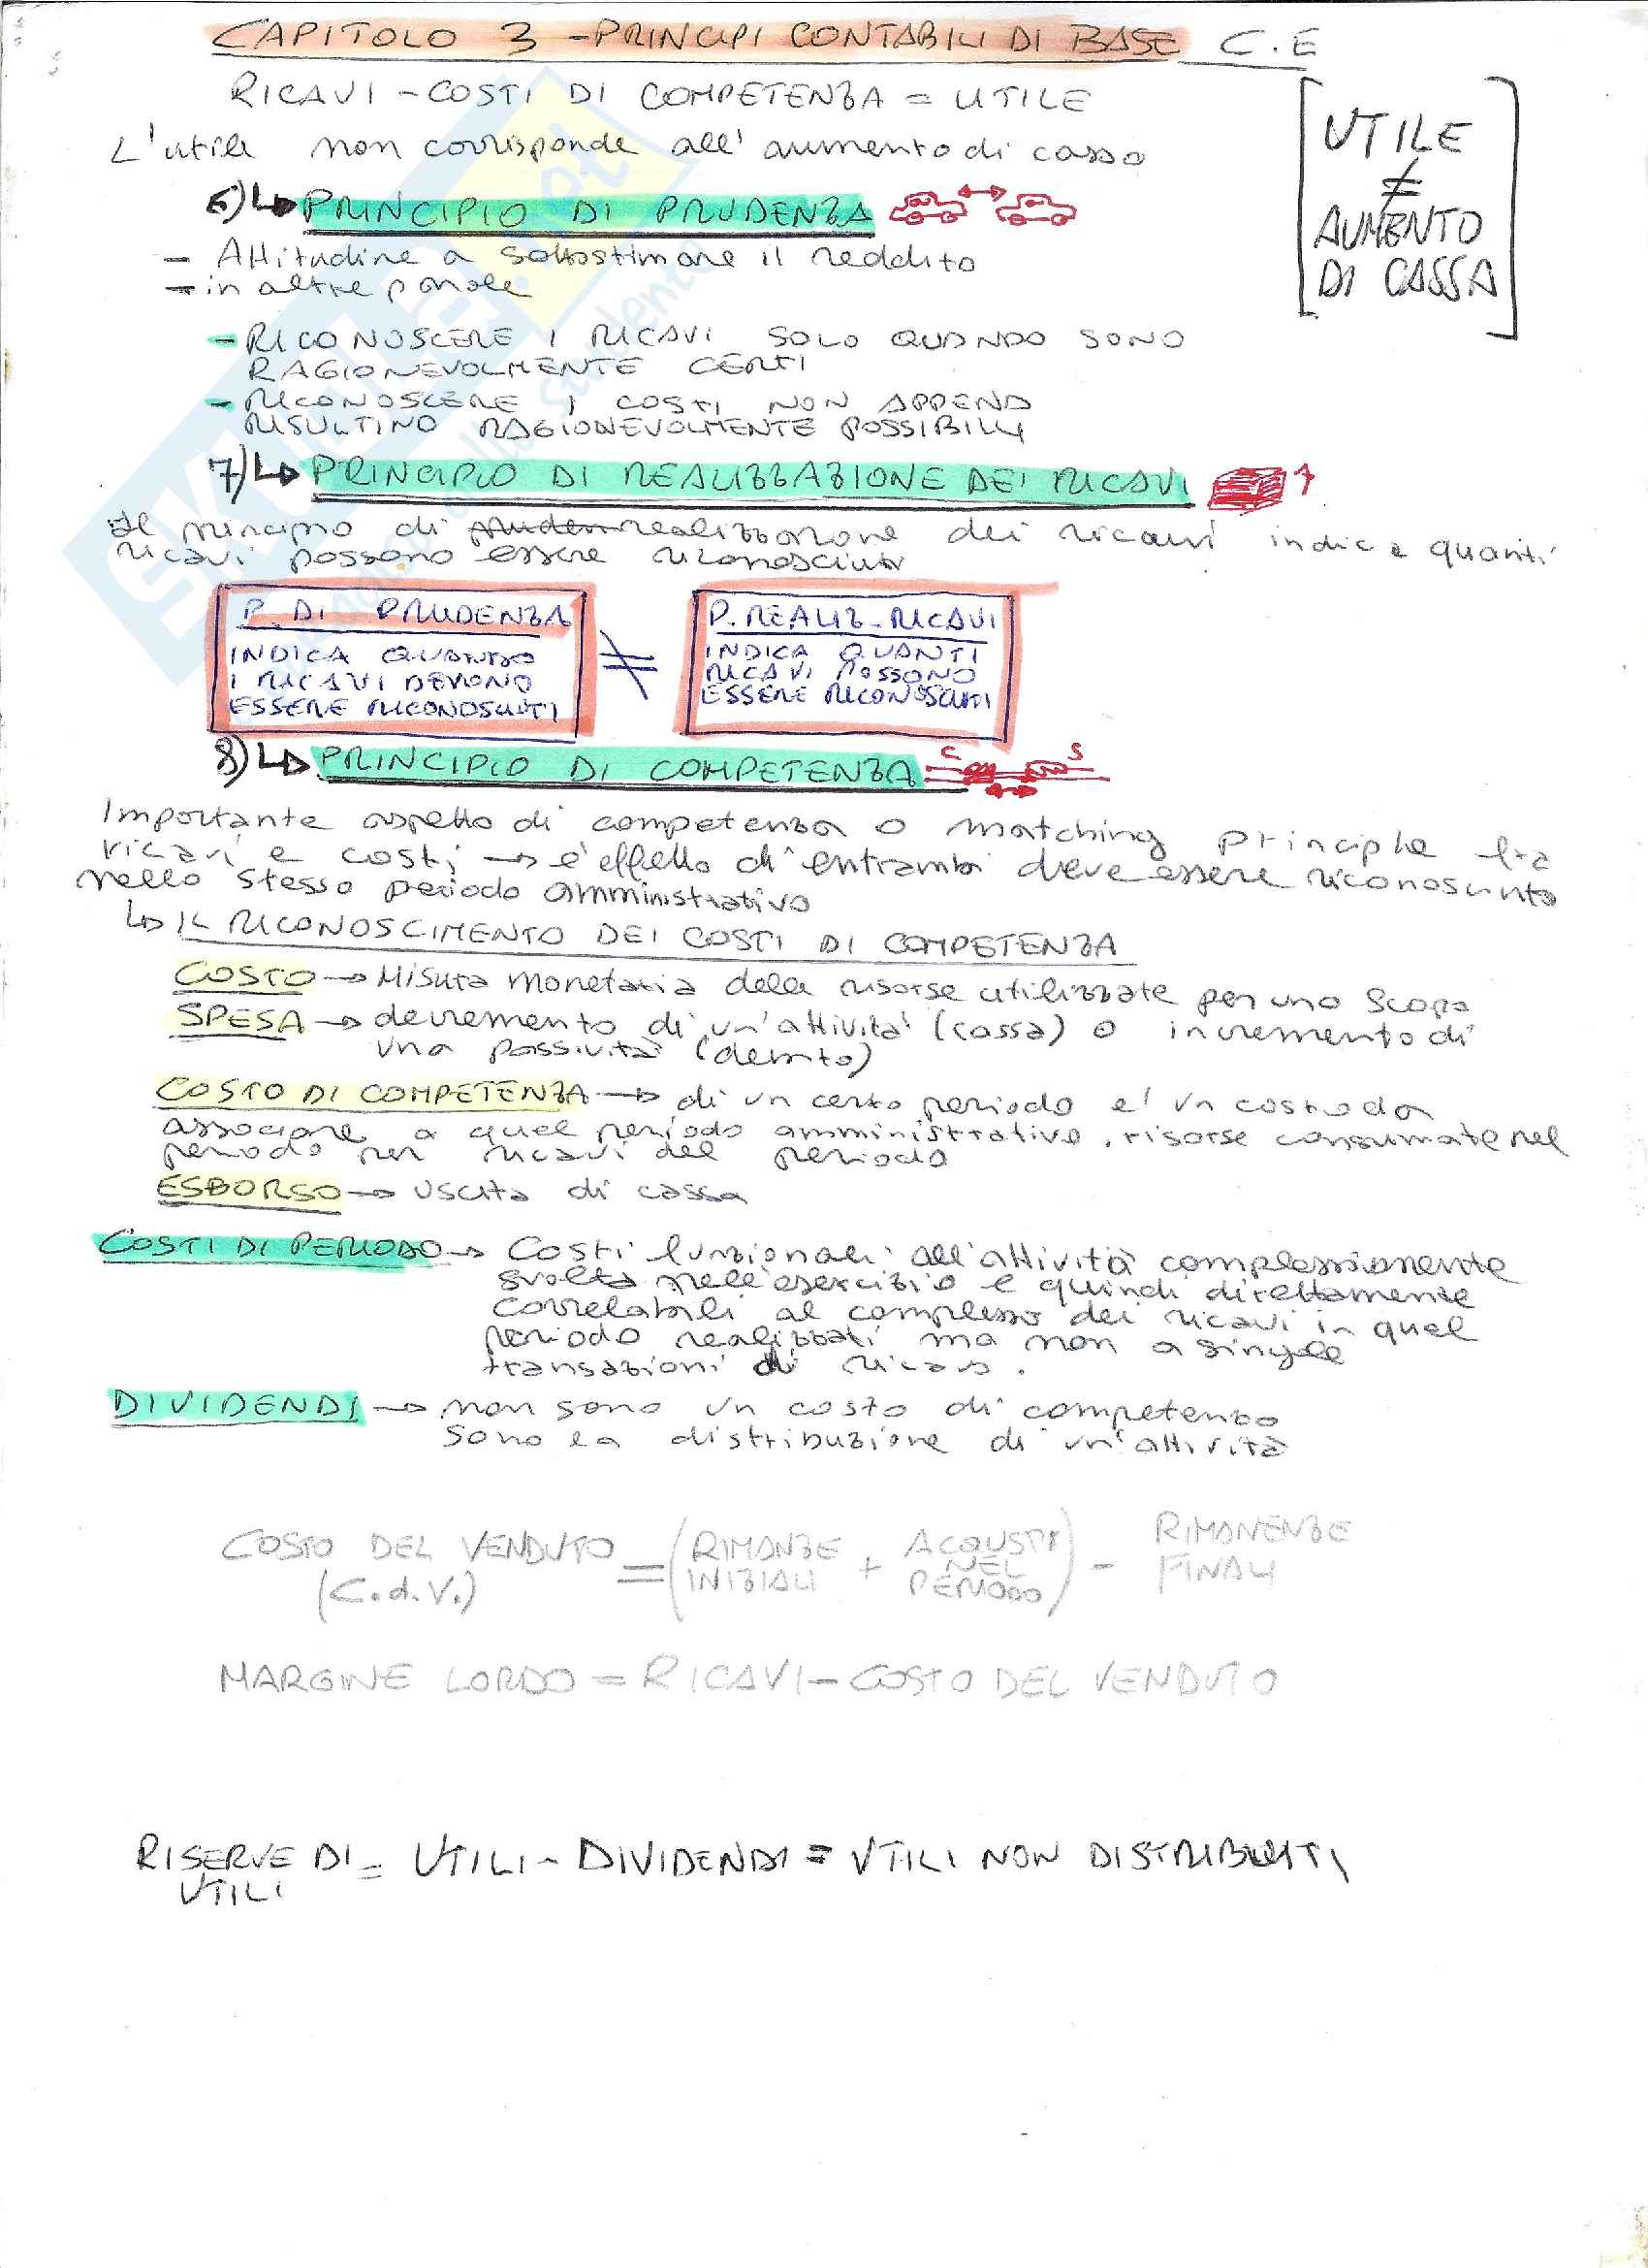 CAPITOLO 3 - PRINCIPI CONTABILI DI BASE C.E
RICAVI - COSTI DI COMPETENZA = UTILE
L'utile non corrisponde all'aumento di cassa
[UTILE
≠
AUMENTO
DI CASSA]
6) ↳ PRINCIPIO DI PRUDENZA
- Attitudine a sottostimare il reddito
- in altre parole
- RICONOSCERE I RICAVI SOLO QUANDO SONO
RAGIONEVOLMENTE CERTI
- RICONOSCERE I COSTI NON APPENA
RISULTINO RAGIONEVOLMENTE POSSIBILI
7) ↳ PRINCIPIO DI REALIZZAZIONE DEI RICAVI
Il principio di realizzazione dei ricavi indica quanti
ricavi possono essere riconosciuti
P. DI PRUDENZA
INDICA QUANDO
I RICAVI DEVONO
ESSERE RICONOSCIUTI
≠
P. REALIZ. RICAVI
INDICA QUANTI
RICAVI POSSONO
ESSERE RICONOSCIUTI
8) ↳ PRINCIPIO DI COMPETENZA
C S
Importante aspetto di competenza o matching principle tra
ricavi e costi → l'effetto di entrambi deve essere riconosciuto
nello stesso periodo amministrativo
↳ IL RICONOSCIMENTO DEI COSTI DI COMPETENZA
COSTO → Misura monetaria delle risorse utilizzate per uno scopo
SPESA → decremento di un'attività (cassa) o incremento di
una passività (debito)
COSTO DI COMPETENZA → di un certo periodo e' un costo da
associare a quel periodo amministrativo, risorse consumate nel
periodo per ricavi del periodo
ESBORSO → uscita di cassa
COSTI DI PERIODO → Costi funzionali all'attività complessivamente
svolta nell'esercizio e quindi direttamente
correlabili al complesso dei ricavi in quel
periodo realizzati ma non a singole
transazioni di ricavo.
DIVIDENDI → non sono un costo di competenza
sono la distribuzione di un'attività
COSTO DEL VENDUTO (C.d.V.) = (RIMANZE INIZIALI + ACQUSTI NEL PERIODO) - RIMANENZE FINALI
MARGINE LORDO = RICAVI - COSTO DEL VENDUTO
RISERVE DI UTILI = UTILI - DIVIDENDI = UTILI NON DISTRIBUITI